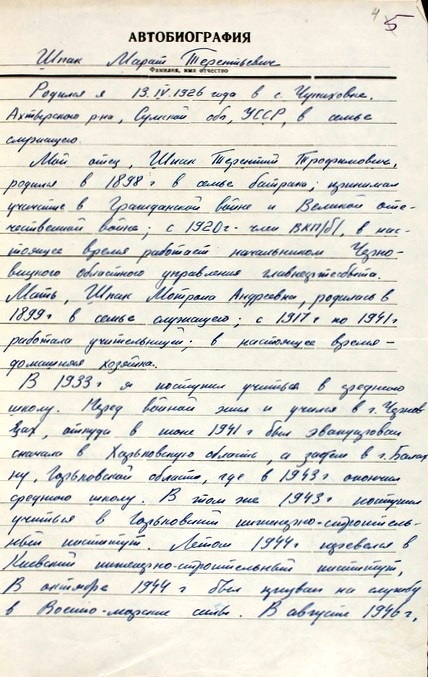 4 5
АВТОБИОГРАФИЯ
Шпак Марат Терентьевич
Фамилия, имя отчество
Родился я 13.IV.1926 года в с. Чупаховке,
Ахтырского р-на, Сумской обл, УССР, в семье
служащего.
Мой отец, Шпак Терентий Трофимович,
родился в 1898 г в семье батрака; принимал
участие в Гражданской войне и Великой оте-
чественной войне; с 1920 г. член ВКП/б/, в нас-
тоящее время работает начальником Черно-
вицкого областного управления главнефтесбыта.
Мать, Шпак Мотрона Андреевна, родилась в
1899 г в семье служащего; с 1917 г по 1941 г
работала учительницей; в настоящее время -
домашняя хозяйка.
В 1933 г я поступил учиться в среднюю
школу. Перед войной жил и учился в г. Чернов
цах, откуда в июне 1941 г был эвакуирован
сначала в Харьковскую область, а затем в г. Балах
ну, Горьковской области, где в 1943 г окончил
среднюю школу. В том же 1943 г поступил
учиться в Горьковский инженерно-строитель-
ный институт. Летом 1944 г перевелся в
Киевский инженерно-строительный институт.
В октябре 1944 г был призван на службу
в Военно-морские силы. В августе 1946 г,